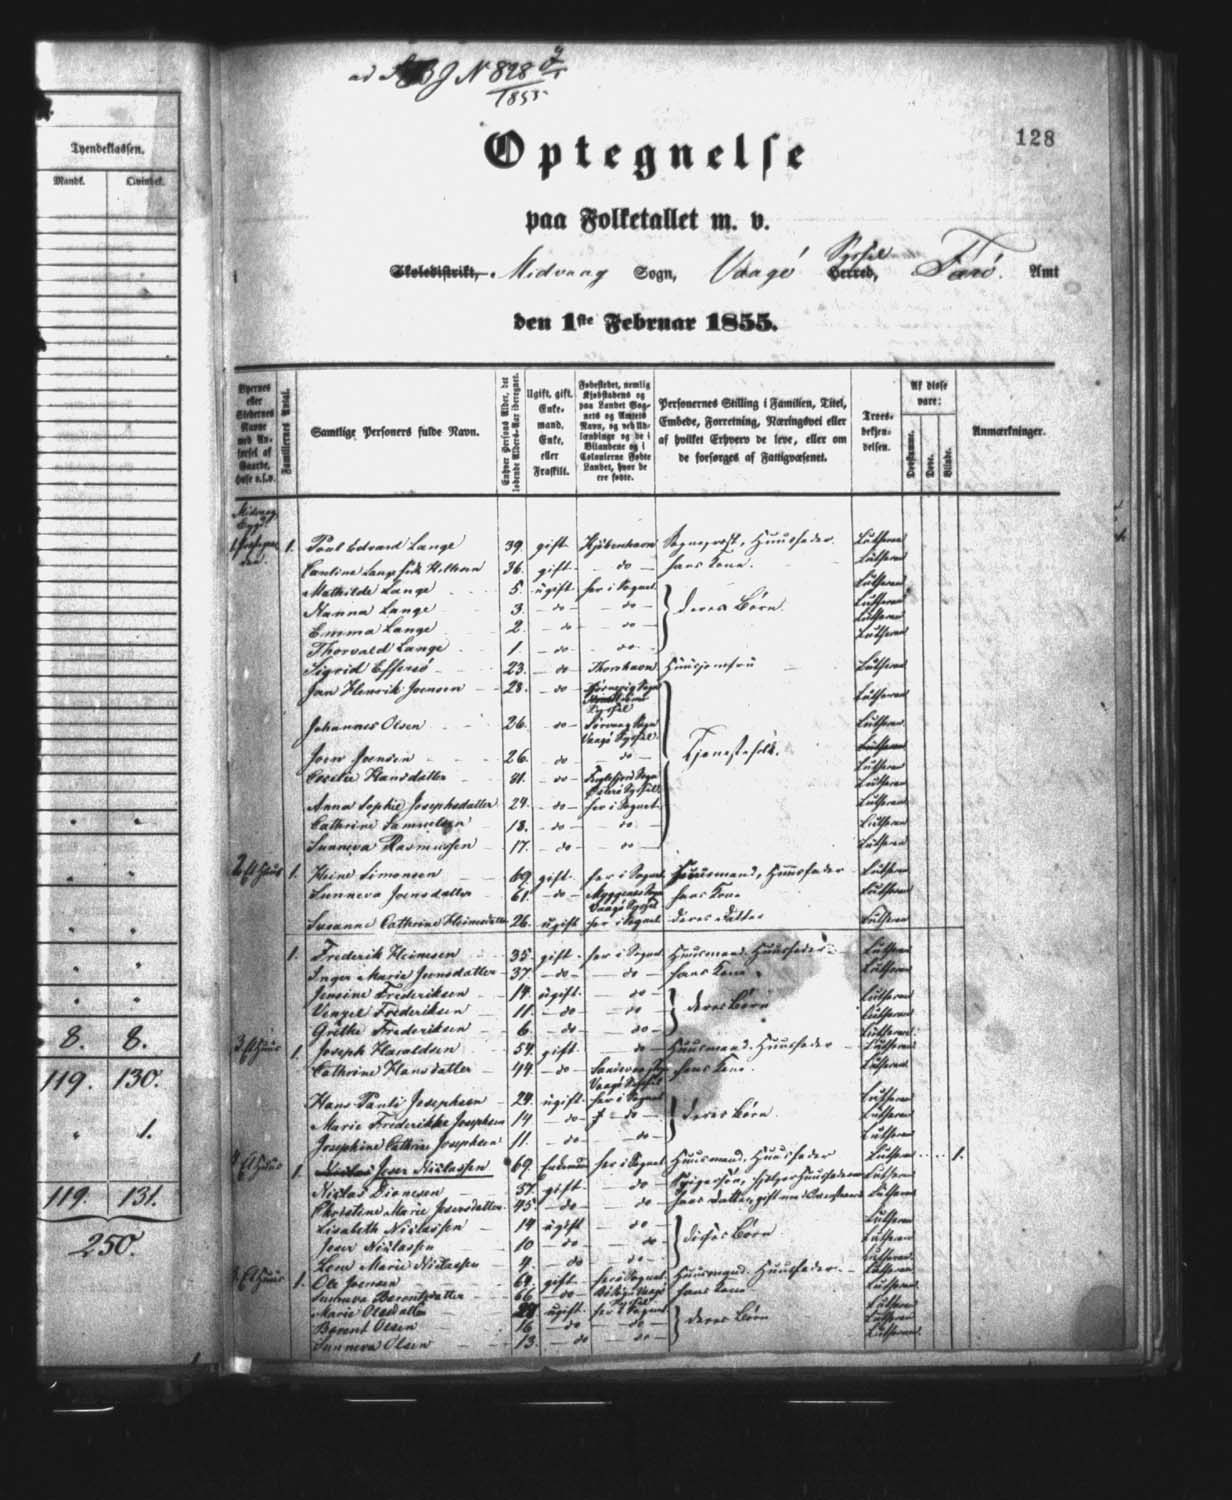 Tyendeklassen.
Mandk. Qvindek.
" "
" "
" "
" "
" "
8. 8.
119. 130.
" 1.
119. 131.
250.
ad N 828
1855
128
Optegnelse
paa Folketallet m. v.
Skoledistrikt, Midvaag Sogn, Vaagö Syssel Herred, Færö. Amt
den 1ste Februar 1855.
Byernes eller Stedernes Navne med Antal af Gaarde, Huse o.s.v.
Familiernes Antal.
Samtlige Personers fulde Navn.
Enhver Persons Alder, det løbende Alders-Aar iberegnet.
Ugift, gift, Enkemand, Enke, eller Fraskilt.
Fødestedet, nemlig Kjøbstadens og paa Landet Sognets og Amtets Navn, og ved Udlændinge og de i Bilandene og i Colonierne Fødte Landet, hvor de ere fødte.
Personernes Stilling i Familien, Titel, Embede, Forretning, Næringsvei eller af hvilket Erhverv de leve, eller om de forsørges af Fattigvæsenet.
Troesbekjendelsen.
Af disse vare:
Døvstumme. Døve. Blinde.
Anmærkninger.
Midvaag Bygd.
1. 1. Poul Edvard Lange 39. gift Kjøbenhavn Sognepræst, Huusfader Luthersk
Lange født 36. gift — do — hans Kone. Luthersk
Mathilde Lange 5. ugift her i Sognet Luthersk
Hanna Lange 3. — do — — do — deres Børn. Luthersk
Emma Lange 2. — do — do — Luthersk
Thorvald Lange 1. — do — do — Luthersk
Sigrid Effersö 23. — do Thorshavn Huusjomfru Luthersk
Jan Henrik Joensen 28. — do Sogn Syssel Luthersk
Johannes Olsen 26. — do — Sörvaag Sogn Vaagö Syssel Luthersk
Joen Joensen 26. do — do — Tjenestefolk. Luthersk
Cecilie Hansdatter 21. — do — Sogn Österö Syssel Luthersk
Anna Sophie Josephsdatter 24. — do — her i Sognet Luthersk
Cathrine Samuelsen 18. — do — — do — Luthersk
Sunneva Rasmussen 17. — do — — do — Luthersk
2. Et Huus 1. Heine Simonsen 69 gift. her i Sognet Huusmand, Huusfader Luthersk
Sunneva Joensdatter 61. — do — Myggenæs Sogn Vaagö Syssel hans Kone Luthersk
Susanne Cathrine Heinesdatter 26. ugift her i Sognet deres Datter Luthersk
1. Frederik Heinesen 35. gift her i Sognet Huusmand, Huusfader Luthersk
Inger Marie Joensdatter 37 — do — — do — hans Kone Luthersk
Jensine Frederiksen 14. ugift. — do — Luthersk
Venzel Frederiksen 11. — do — do — deres Børn Luthersk
Grethe Frederiksen 6. — do — do — Luthersk
3. Et Huus 1. Joseph Haraldsen 54. gift — do — Huusmand, Huusfader Luthersk
Cathrine Hansdatter 44 — do — Sandevaag Sogn Vaagö Syssel hans Kone. Luthersk
Hans Pauli Josephsen 24. ugift her i Sognet Luthersk
Marie Frederikke Josephsen 14 — do — — do — deres Børn Luthersk
Josephine Cathrine Josephsen 11. — do — do — Luthersk
4. Et Huus 1. Joser Niclassen 69. Enkemand her i Sognet Huusmand, Huusfader Luthersk 1.
Niclas Dionesen 37. gift — do Luthersk
Christine Marie Josersdatter 45 — do — do — hans Datter, gift med Luthersk
Lisabeth Niclassen 14 ugift — do — Luthersk
Joser Niclassen 10 — do — do — disses Børn Luthersk
Lene Marie Niclassen 4. — do do — Luthersk
5. Et Huus 1. Ole Joensen 64. gift her i Sognet Huusmand, Huusfader Luthersk
Sunneva Berentsdatter 66 — do — Vaagö Syssel hans Kone Luthersk
Marie Olesdatter ugift her i Sognet Luthersk
Berent Olsen 16 — do — do — deres Børn Luthersk
Sunneva Olsen 13. — do do — Luthersk